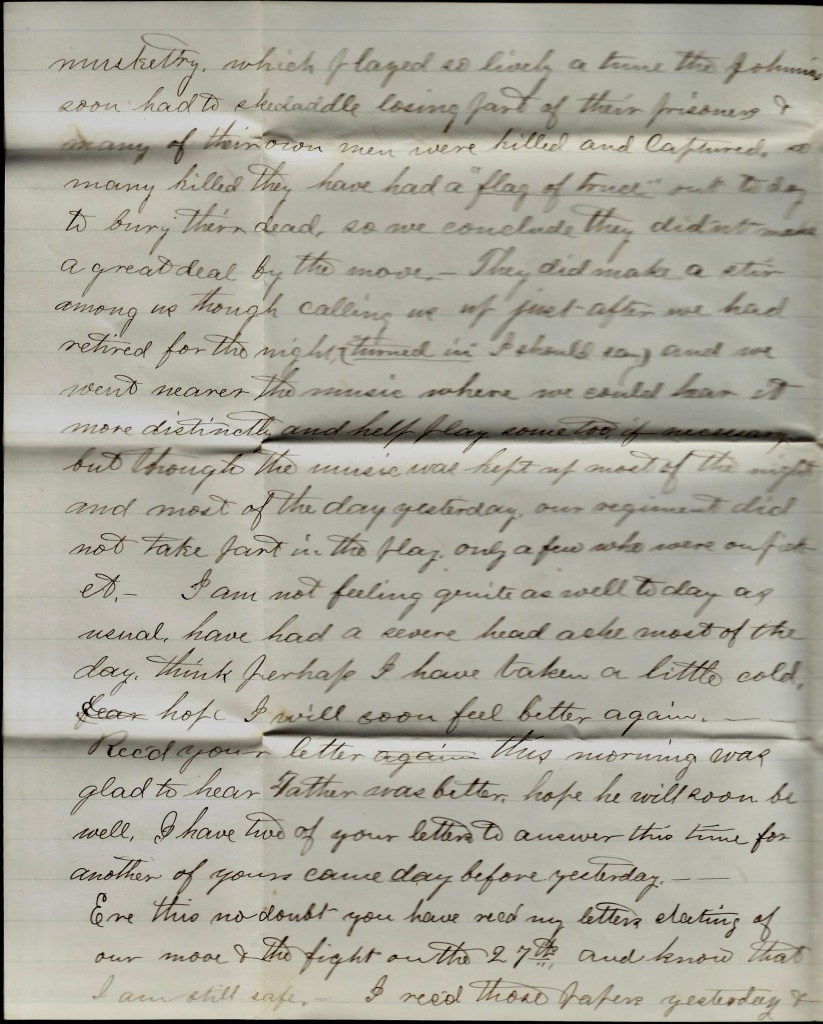 musketry, which played so lively a tune the Johnnies
soon had to skedaddle losing part of their prisoners &
many of their own men were killed and Captured, so
many killed they have had a "flag of truce" out to day
to bury their dead, so we conclude they didn't make
a great deal by the move.— They did make a stir
among us though calling us up just after we had
retired for the night, (turned in I should say) and we
went nearer the music where we could hear it
more distinctly and help play some too, if necessary
but though the music was kept up most of the night
and most of the day yesterday, our regiment did
not take part in the play, only a few who were on pick-
et.— I am not feeling quite as well to day as
usual, have had a severe head ache most of the
day, think perhaps I have taken a little cold,
fear hope I will soon feel better again.—
Rec'd your letter again this morning was
glad to hear Father was better, hope he will soon be
well, I have two of your letters to answer this time for
another of yours came day before yesterday.——
Ere this no doubt you have recd my letters stating of
our move & the fight on the 27th, and know that
I am still safe.— I rec'd those papers yesterday &